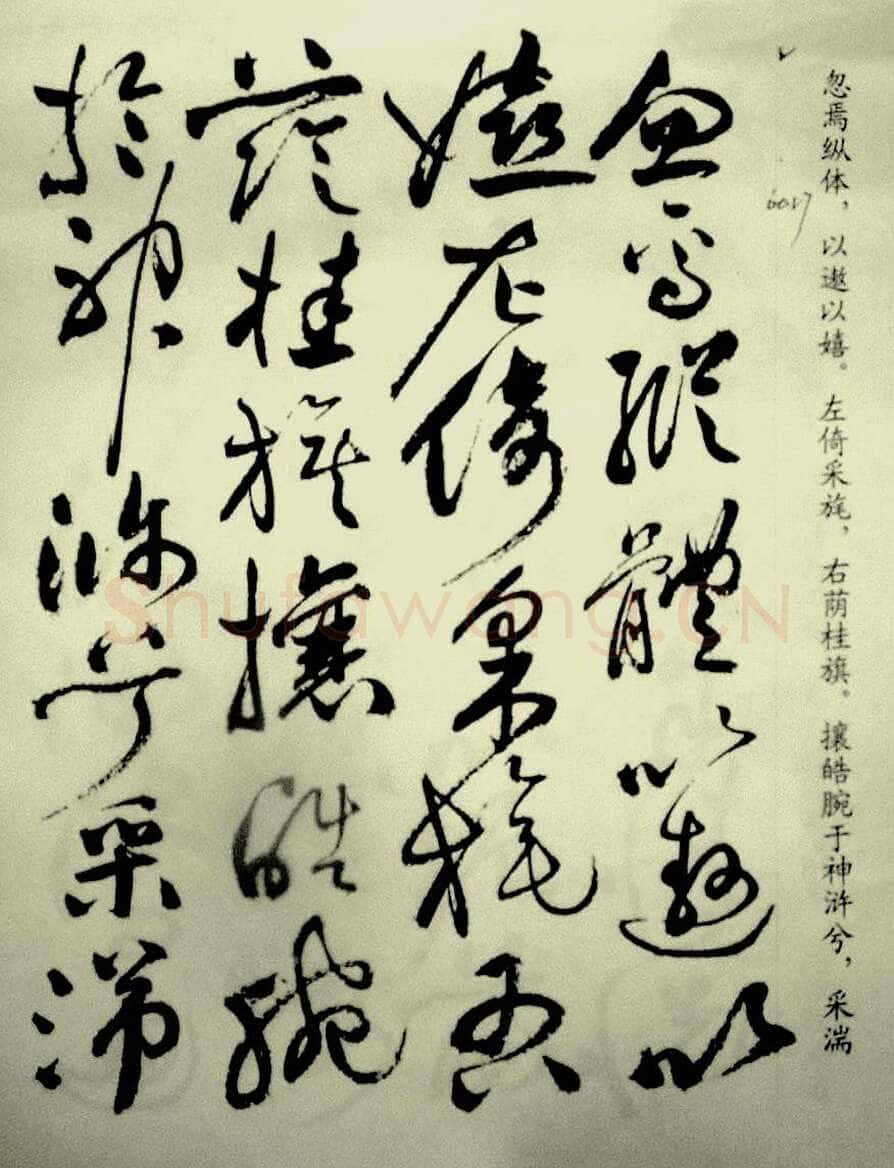 忽焉纵体，以遨以嬉。左倚采旄，右荫桂旗。攘皓腕于神浒兮，采湍
忽焉縱體以遨以
嬉左倚采旄右
蔭桂旗攘皓腕
於神滸兮采湍
Shufawang.CN